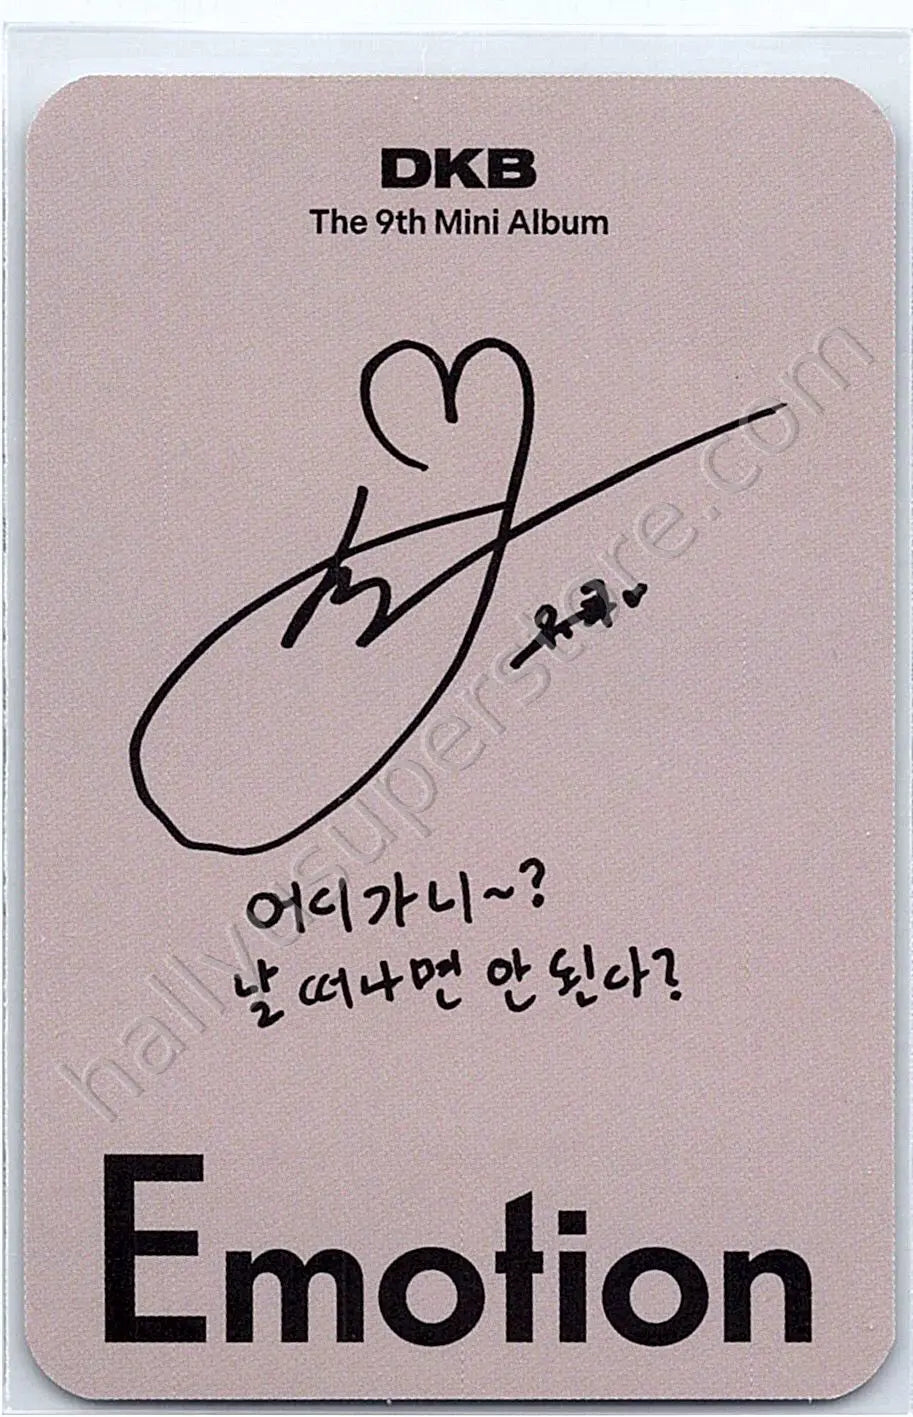 DKB
The 9th Mini Album
유쿠♥
어디가니~?
날 떠나면 안 된다?
Emotion
hallyusuperstore.com